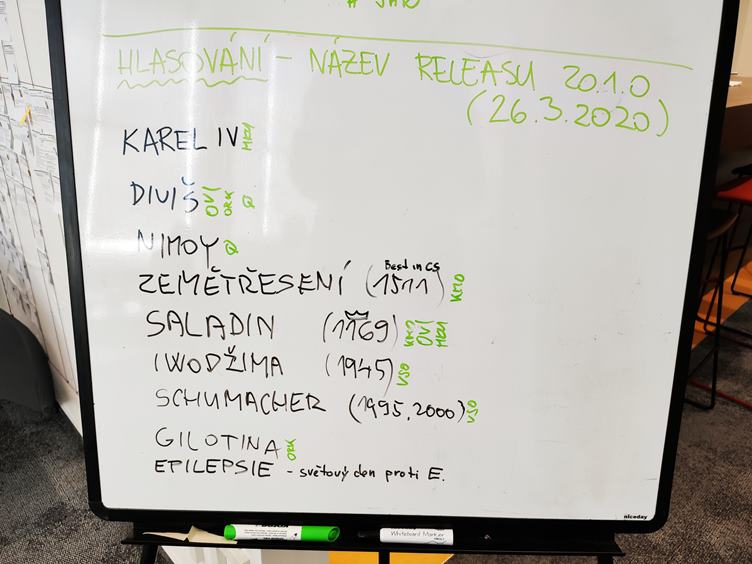 HLASOVÁNÍ - NÁZEV RELEASU 20.1.0
(26.3.2020)
KAREL IV MKU
DIVIŠ OVÍ ORK
NIMOY
Best in CS
ZEMĚTŘESENÍ (1511) KMO
SALADIN (1169) KMO OVÍ MKU
IWODŽIMA (1945) VSO
SCHUMACHER (1995, 2000) VSO
GILOTINA ORK
EPILEPSIE - světový den proti E.
niceday
Whiteboard Marker